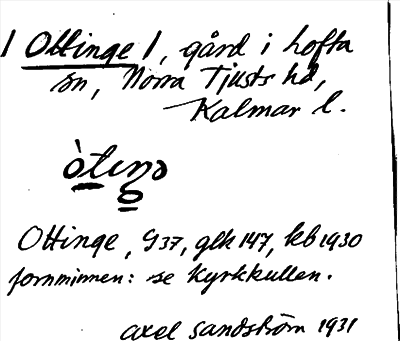 / Ottinge /, gård i Lofta
sn, Norra Tjusts hd,
Kalmar l.
òtiŋə
Ottinge, G37, glk 147, kb 1930
fornminnen: se Kyrkkullen.
Axel Sandström 1931